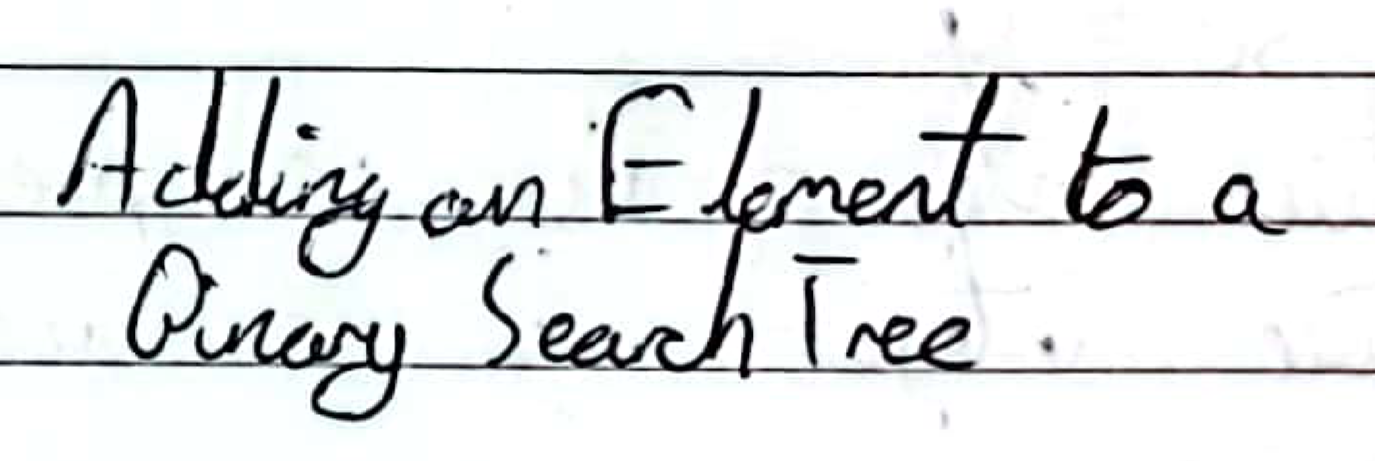 Adding an Element to a
Binary Search Tree.